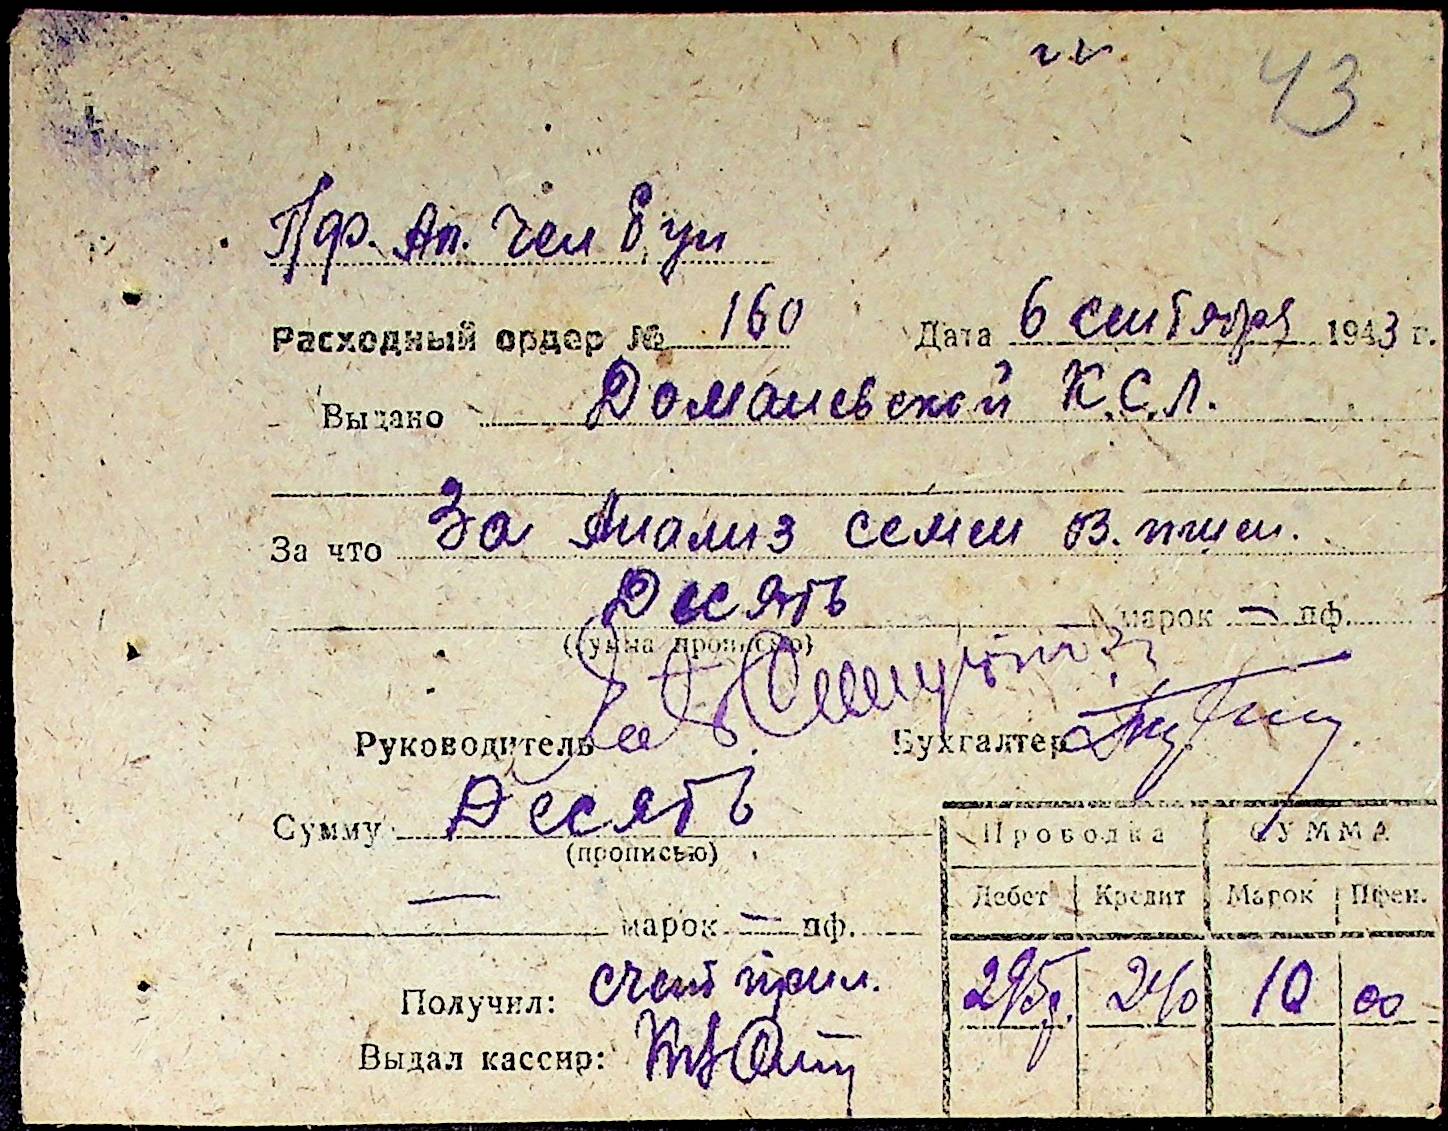 43
Пф. Ап. Чел
Расходный ордер № 160 Дата 6 сентября 1943 г.
Выдано Доманевской К.С.Л.
За что За Анализ семен оз. пшен.
Десять марок — пф.
(сумма прописью)
Руководитель Бухгалтер
Сумму Десять
(прописью)
— марок — пф.
Получил: счет прил.
Выдал кассир:
Проводка СУММА
Дебет Кредит Марок Пфен.
240 10 00